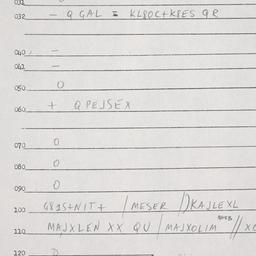 031
032 - Q GAL = KL8OC+K8ES QR
040 -
041 -
050 O
060 + Q PEJSEX
070 O
080 O
090 O
100 G81S+NIT+ / MESER /) KAJLEXL
110 MAJXLEN XX QU / MAJXOLIM // XC
120